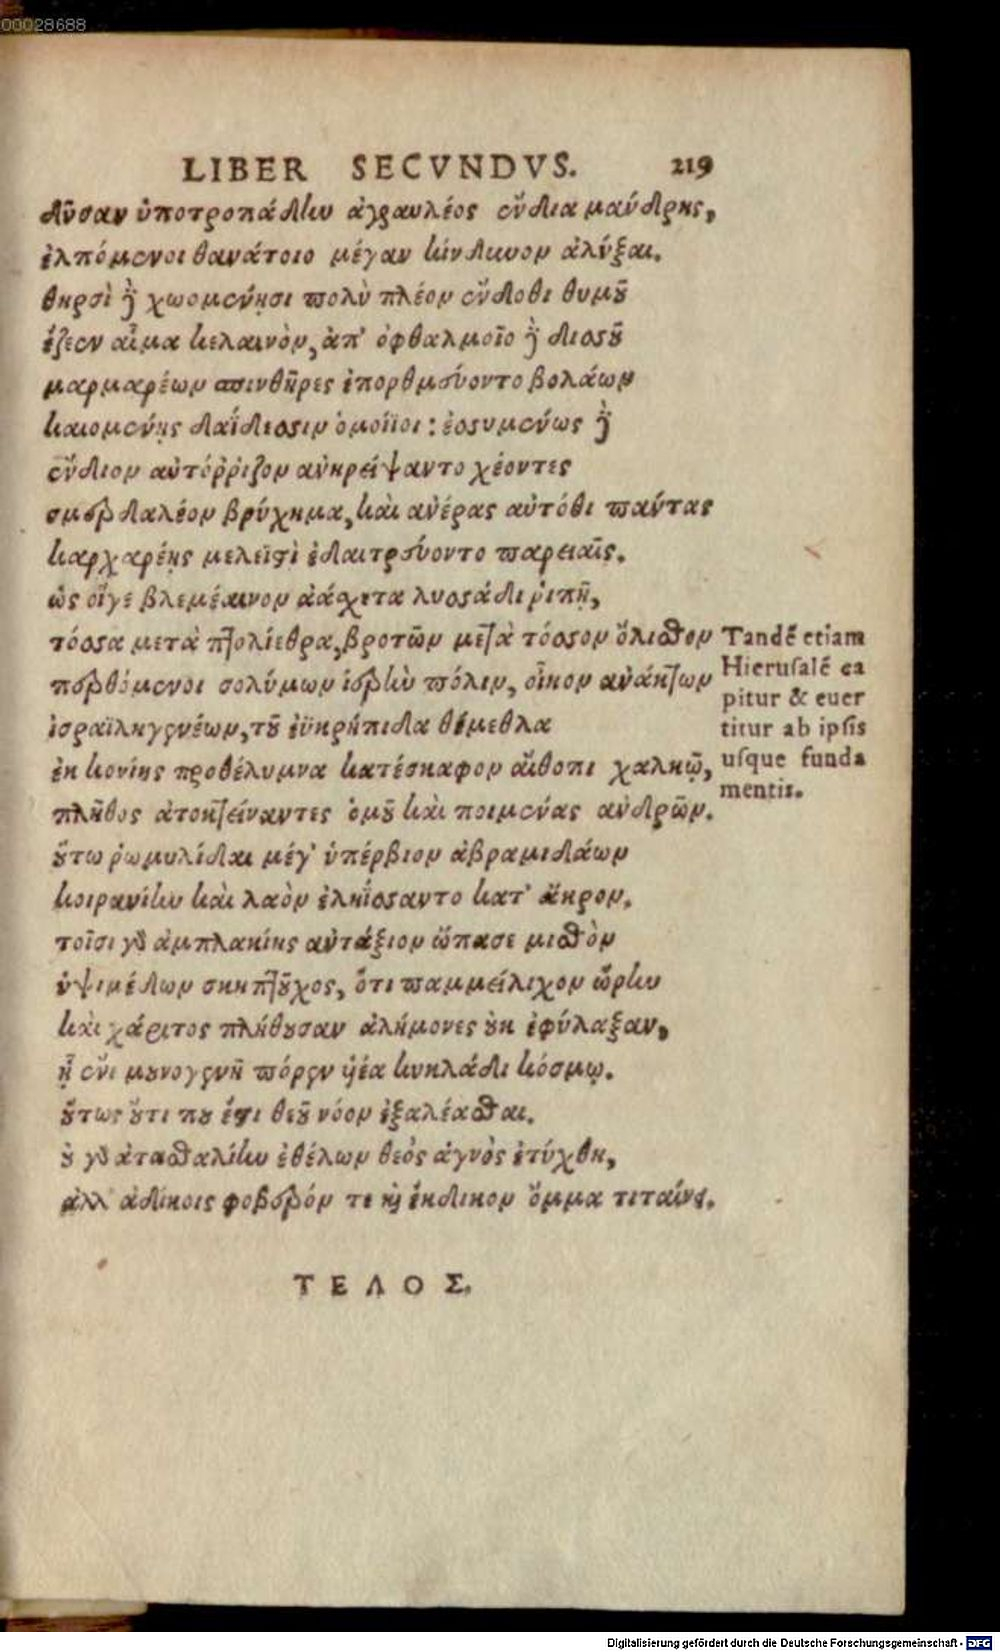 00028688
LIBER SECVNDVS. 219
δῦσαν ὑποτροπάδην ἀγραυλέος ἔνδια μάνδρης,
ἐλπόμενοι θανάτοιο μέγαν κίνδυνον ἀλύξαι.
θηρσὶ δὲ χωομένῃσι πολὺ πλέον ἔνδοθι θυμοῦ
ἔζεεν αἷμα κελαινὸν, ἀπ' ὀφθαλμοῖο δὲ δισσοῦ
μαρμαρέων σπινθῆρες ἐπορθμεύοντο βολάων
καιομένῃς δαΐδεσσιν ὁμοίϊοι: ἐσσυμένως δὲ
ἔνδιον αὐτόῤῥιζον ἀνηρείψαντο χέοντες
σμερδαλέον βρύχημα, καὶ ἀνέρας αὐτόθι πάντας
καρχαρέῃς μελεϊστὶ ἐδαιτρεύοντο παρειαῖς.
ὡς οἵγε βλεμέαινον ἀάσχετα λυσσάδι ῥιπῇ,
τόσσα μετὰ πτολίεθρα, βροτῶν μετὰ τόσσον ὄλισθον
περθόμενοι σολύμων ἱερὴν πόλιν, οἶκον ἀνάκτων
ἰσραϊληγενέων, τοῦ ἐϋκρήπιδα θέμεθλα
ἐκ κονίης προθέλυμνα κατέσκαφον αἴθοπι χαλκῷ,
πλῆθος ἀποκτείναντες ὁμοῦ καὶ ποιμένας ἀνδρῶν.
οὕτω ῥωμυλίδαι μέγ' ὑπέρβιον ἀβραμιδάων
κοιρανίην καὶ λαὸν ἐληΐσσαντο κατ' ἄκρον.
τοῖσι γὰρ ἀμπλακίης ἀντάξιον ὤπασε μισθὸν
ὑψιμέδων σκηπτοῦχος, ὅτι παμμείλιχον ὥρην
καὶ χάριτος πλήθουσαν ἀλήμονες οὐκ ἐφύλαξαν,
ᾗ ἔνι μουνογενῆ πόρεν ὑέα κυκλάδι κόσμῳ.
οὕτως οὔτι που ἔστι θεοῦ νόον ἐξαλέασθαι.
οὐ γὰρ ἀτασθαλίην ἐθέλων θεὸς ἁγνὸς ἐτύχθη,
ἀλλ' ἀδίκοις φοβερόν τε καὶ ἔκδικον ὄμμα τιταίνει.
Tandē etiam
Hierusalē ca
pitur & euer
titur ab ipsis
usque funda
mentis.
ΤΕΛΟΣ.
Digitalisierung gefördert durch die Deutsche Forschungsgemeinschaft - DFG